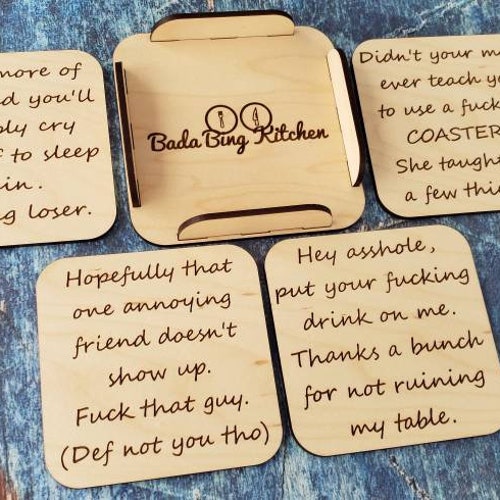 more of
you'll
cry
to sleep
loser.
Bada Bing Kitchen
Didn't your
ever teach
to use a
COASTER
She taught
a few
Hopefully that
one annoying
friend doesn't
show up.
Fuck that guy.
(Def not you tho)
Hey asshole,
put your fucking
drink on me.
Thanks a bunch
for not ruining
my table.